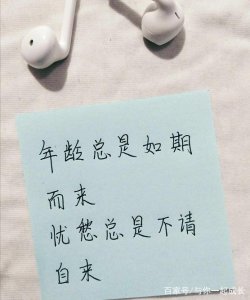 年龄总是如期
而来
忧愁总是不请
自来
百家号/与你一起成长